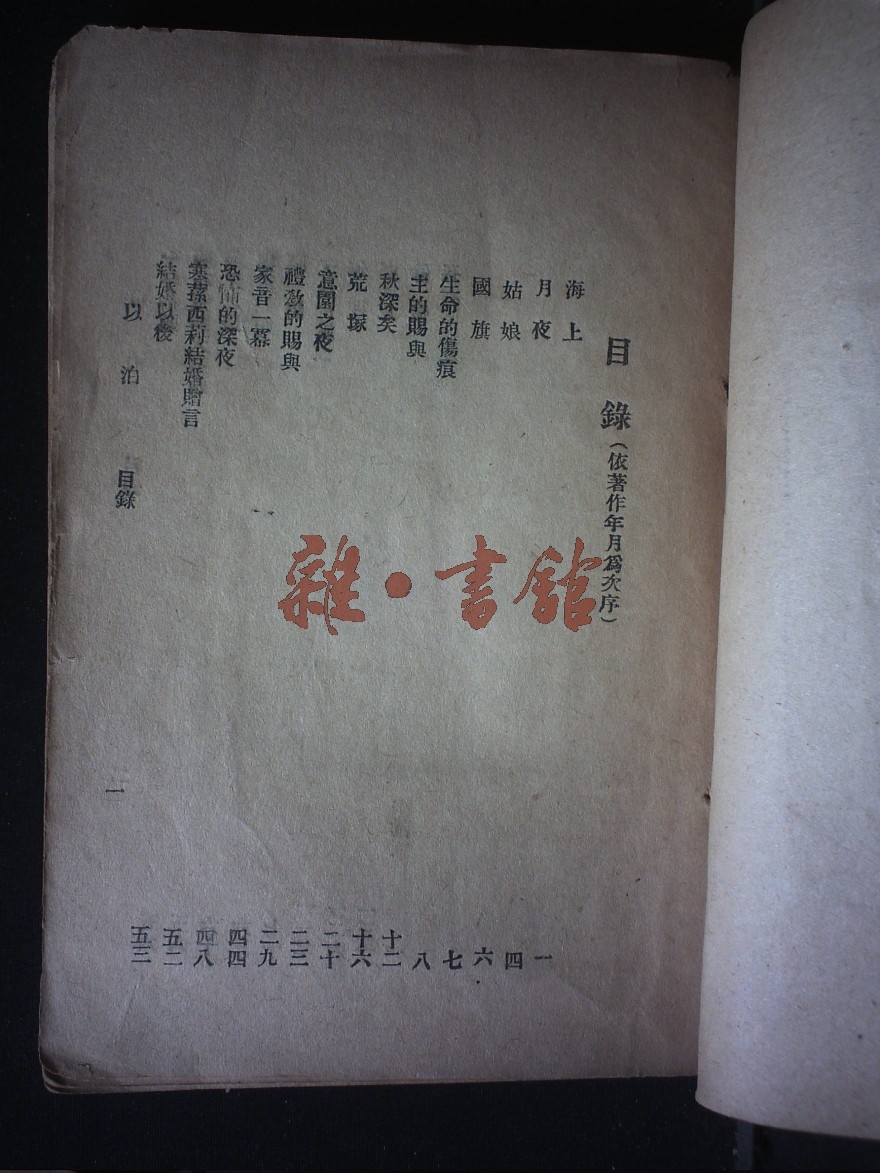 目錄（依著作年月爲次序）
海上 一
月夜 四
姑娘 六
國旗 七
生命的傷痕 八
主的賜與 十二
秋深矣 十六
荒塚 二十
意園之夜 二三
禮教的賜與 二九
家音一冪 四四
恐怖的深夜 四八
塞蓀西莉結婚贈言 五二
結婚以後 五三
以泊 目錄 一
雜·書館